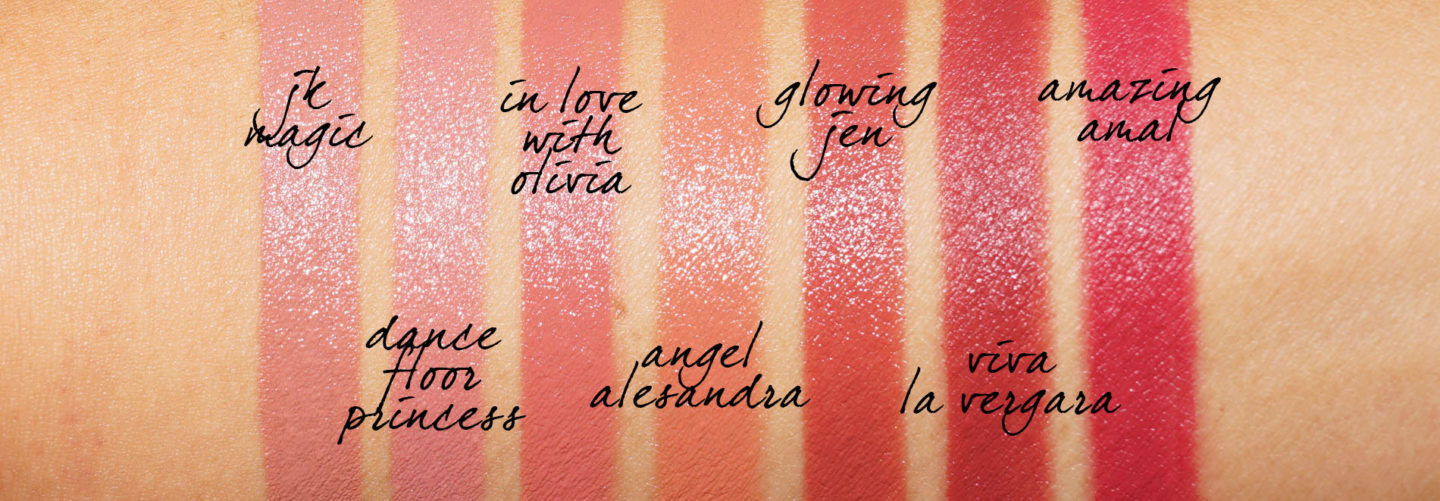 jk
magic
dance
floor
princess
in love
with
olivia
angel
alesandra
glowing
jen
viva
la vergara
amazing
amal